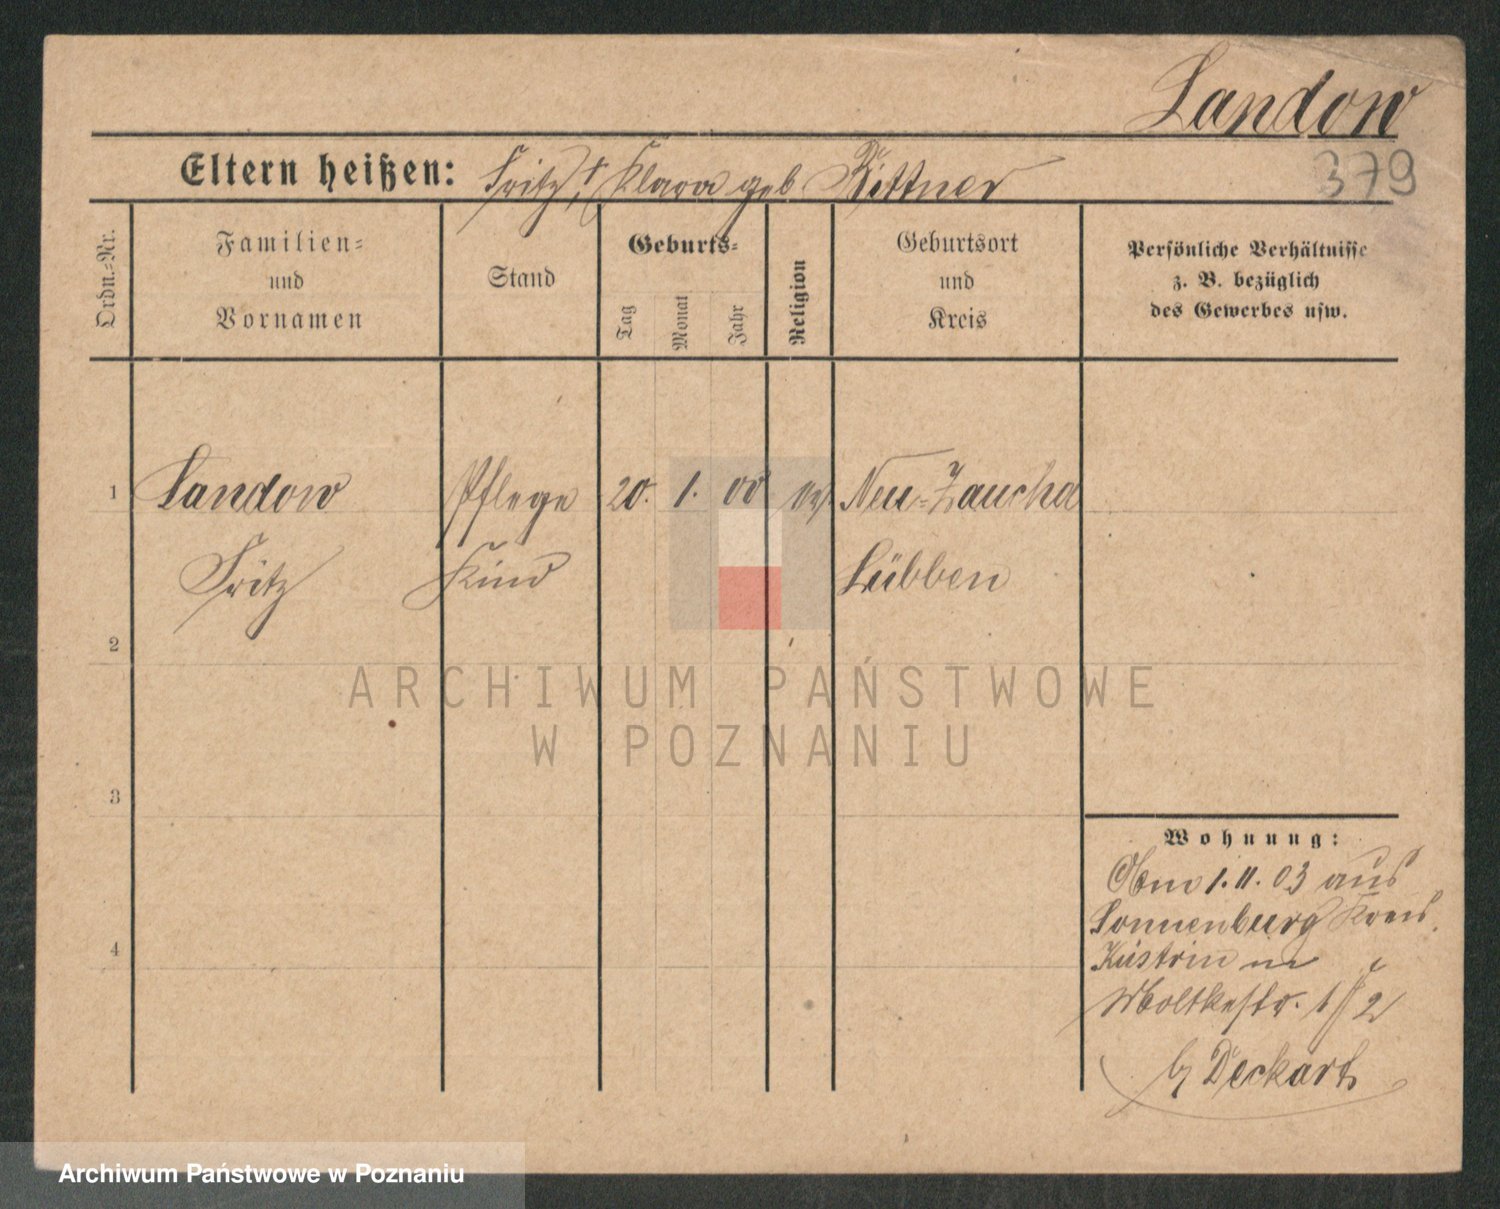 Landow
379
Eltern heißen: Fritz, † Klara geb Bittner
Ordn.-Nr.
Familien-
und
Vornamen
Stand
Geburts-
Tag
Monat
Jahr
Religion
Geburtsort
und
Kreis
Persönliche Verhältnisse
z. B. bezüglich
des Gewerbes usw.
1 Landow Pflege 20. 1. 00 ev. Neu-Zaucha
Fritz Kind Lübben
2
3
4
Wohnung:
1. 11. 03 aus
Sonnenburg Kreis
Küstrin
Moltkestr. 1
b/ Deckart
ARCHIWUM PAŃSTWOWE
W POZNANIU
Archiwum Państwowe w Poznaniu